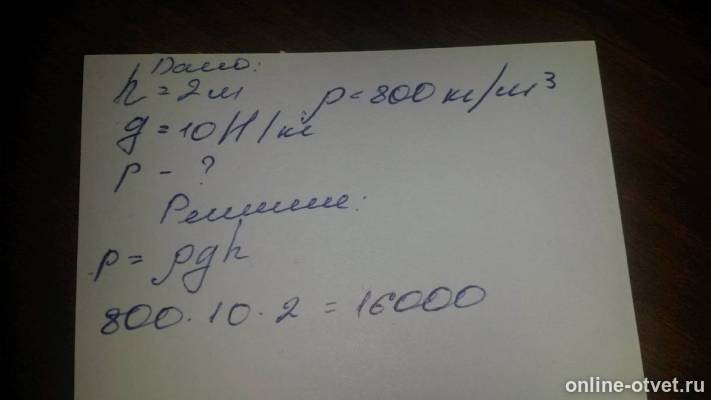 Дано:
h = 2м ρ = 800 кг/м³
g = 10 Н/кг
p - ?
Решение:
p = ρgh
800 · 10 · 2 = 16000
online-otvet.ru